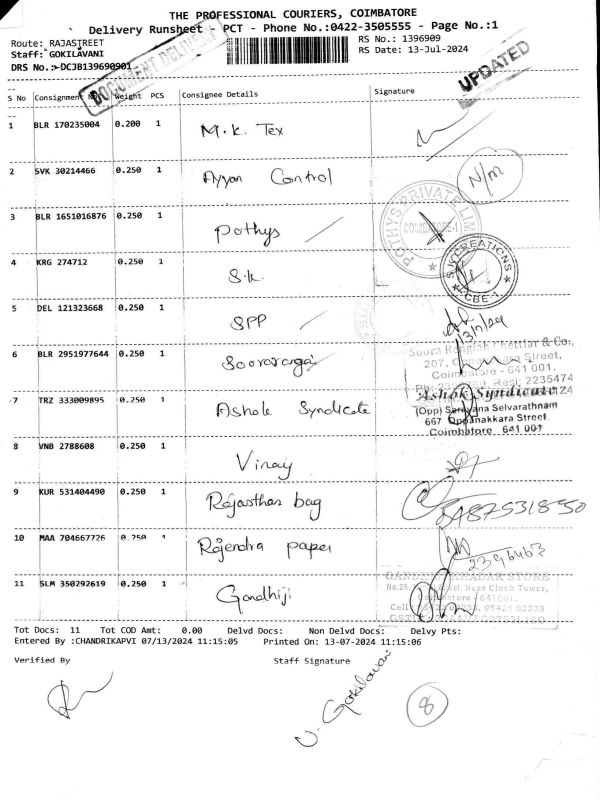 THE PROFESSIONAL COURIERS, COIMBATORE
Delivery Runsheet - PCT - Phone No.:0422-3505555 - Page No.:1
Route: RAJASTREET
RS No.: 1396909
Staff: GOKILAVANI
RS Date: 13-Jul-2024
DRS No.:-DCJB139690901
DOCUMENT DELIVERY
UPDATED
S No Consignment Weight PCS Consignee Details Signature
1 BLR 170235004 0.200 1 M.K. Tex
2 SVK 30214466 0.250 1 Ayyan Control N/M
3 BLR 1651016876 0.250 1 Pothys
POTHYS PRIVATE LIM
COIMBATORE-1
4 KRG 274712 0.250 1 S.K.
S.K CREATIONS
CBE-1
5 DEL 121323668 0.250 1 SPP
13/7/24
6 BLR 2951977644 0.250 1
Chettiar & Co.,
207, Street,
Coimbatore - 641 001.
Resi: 2235474
7 TRZ 333009895 0.250 1 Ashok Syndicate
Ashok Syndicate
(Opp) Saravana Selvarathnam
667 Oppanakkara Street
Coimbatore 641 001
8 VNB 2788608 0.250 1 Vinay
9 KUR 531404490 0.250 1 Rajasthan bag
10 MAA 704667726 0.250 1 Rajendra paper
2396463
11 SLM 350292619 0.250 1 Gandhiji
KHADAR STORE
No.26, Near Clock Tower,
641001.
Cell 98428 02233
Tot Docs: 11 Tot COD Amt: 0.00 Delvd Docs: Non Delvd Docs: Delvy Pts:
Entered By :CHANDRIKAPVI 07/13/2024 11:15:05 Printed On: 13-07-2024 11:15:06
Verified By Staff Signature
J. Gokilavani
8